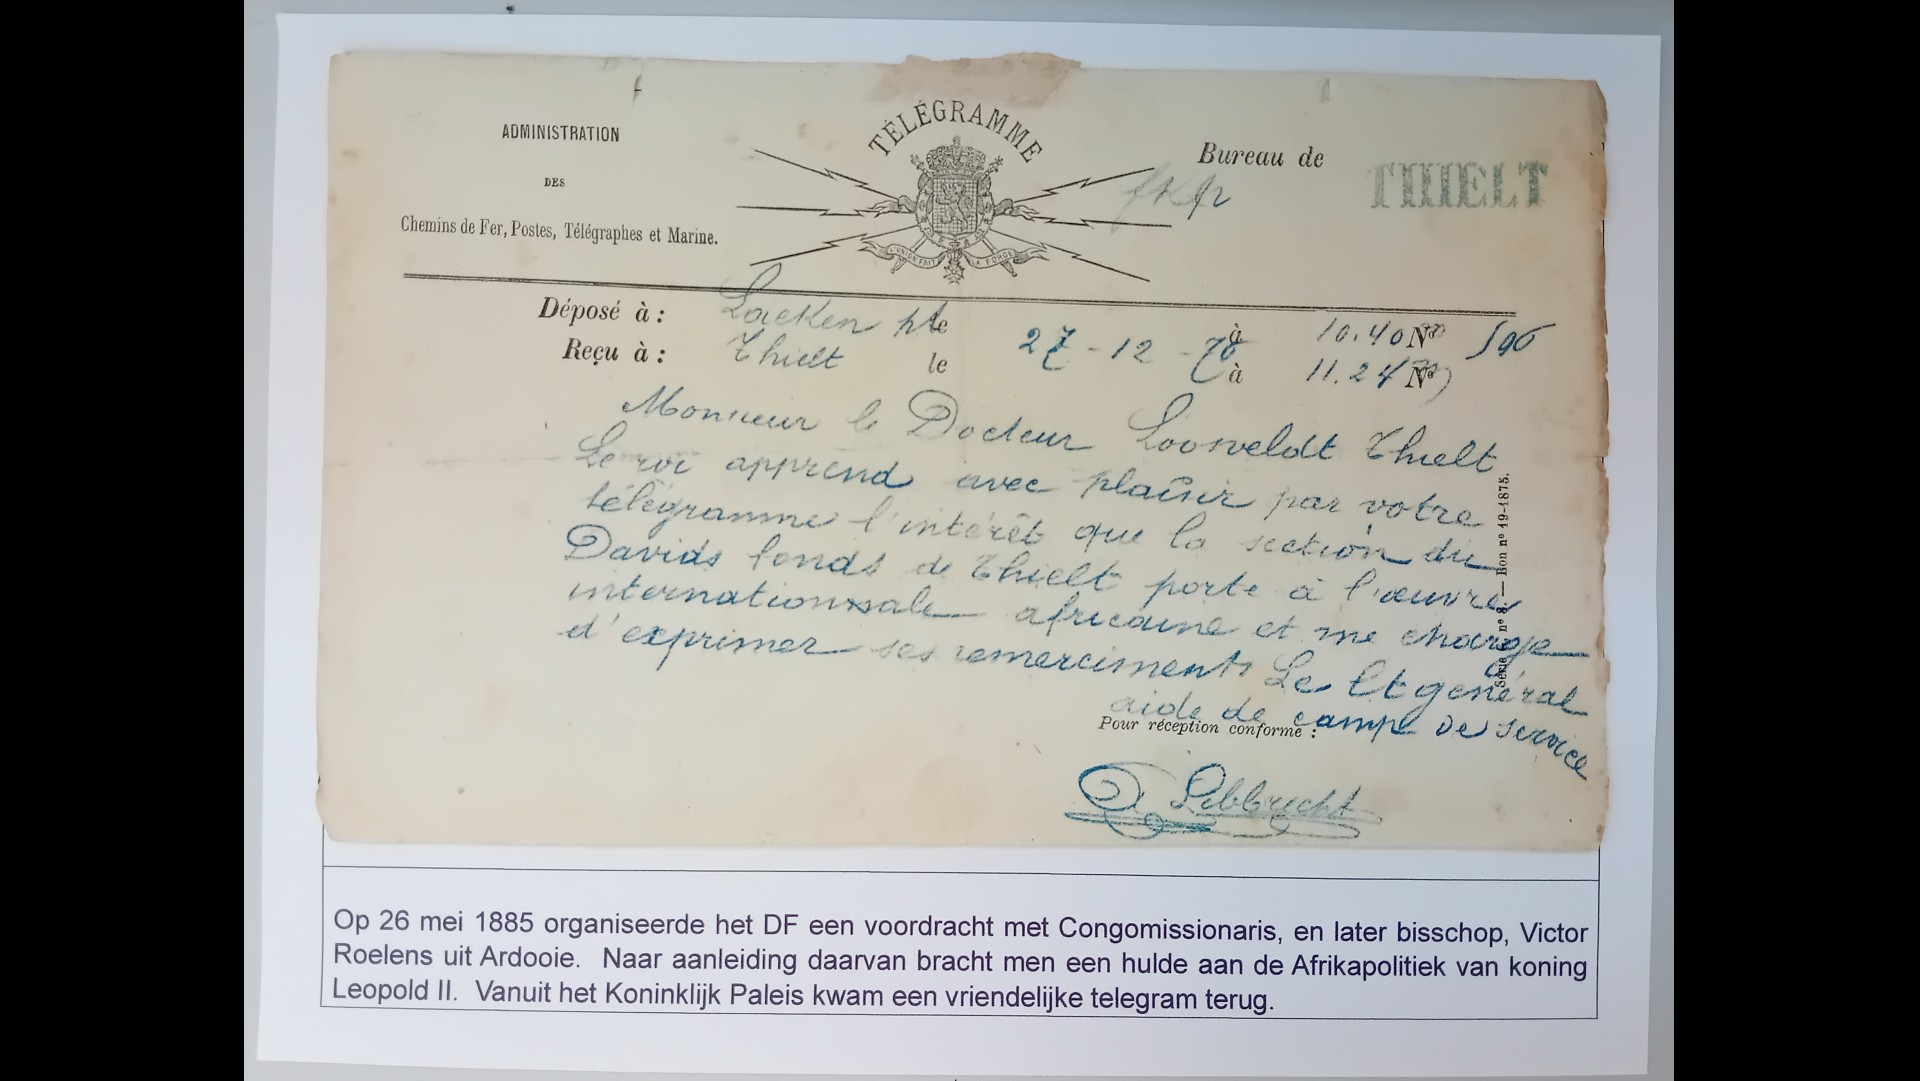 ADMINISTRATION
DES
Chemins de Fer, Postes, Télégraphes et Marine.
TÉLÉGRAMME
L'UNION FAIT LA FORCE
Bureau de THIELT
Déposé à : Laeken le 27-12-76 à 10.40 No 596
Reçu à : Thielt le à 11.24 No
Monsieur le Docteur Loosveldt Thielt
Le roi apprend avec plaîsir par votre
télégramme l'intérêt que la section du
Davids fonds de Thielt porte à l'œuvre
internationnale africaine et me charge
d'exprimer ses remerciments Le Lt général
aide de camp de service
Pour réception conforme :
Lebbrecht
Série n° 8. — Bon n° 19-1875.
Op 26 mei 1885 organiseerde het DF een voordracht met Congomissionaris, en later bisschop, Victor
Roelens uit Ardooie. Naar aanleiding daarvan bracht men een hulde aan de Afrikapolitiek van koning
Leopold II. Vanuit het Koninklijk Paleis kwam een vriendelijke telegram terug.